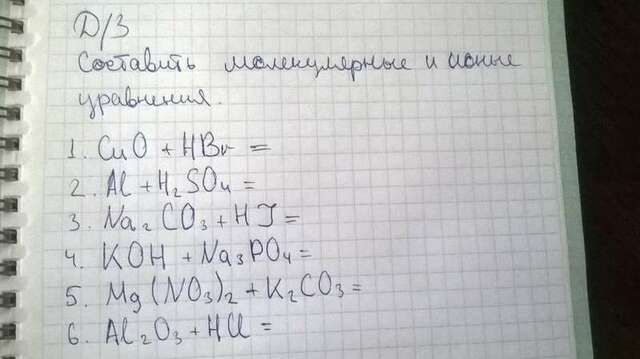 Д/З
Составить молекулярные и ионые
уравнения.
1. CuO + HBr =
2. Al + H₂SO₄ =
3. Na₂CO₃ + HJ =
4. KOH + Na₃PO₄ =
5. Mg(NO₃)₂ + K₂CO₃ =
6. Al₂O₃ + HCl =